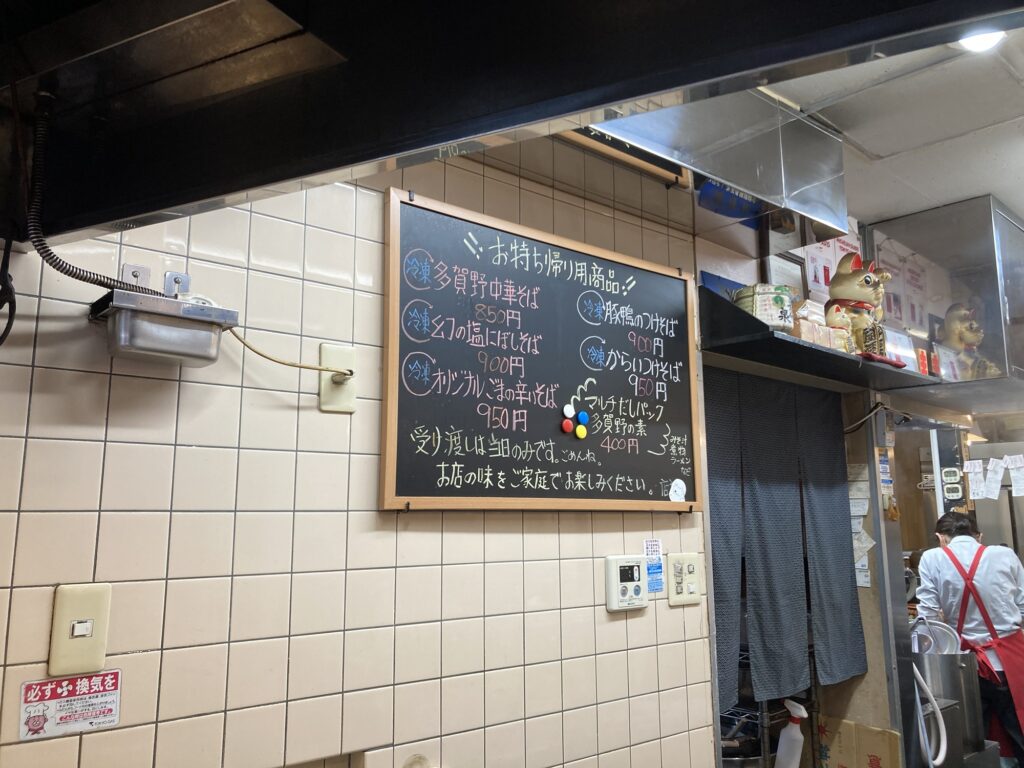 お持ち帰り用商品
冷凍 多賀野中華そば
850円
冷凍 幻の塩にぼしそば
900円
冷凍 オリジナルごまの辛いそば
950円
冷凍 豚鴨のつけそば
900円
冷凍 からいつけそば
950円
マルチだしパック
多賀野の素
400円
みそ汁
煮物
ラーメン
など
受け渡しは当日のみです。ごめんね。
お店の味をご家庭でお楽しみください。
必ず 換気を
TOKYO GAS